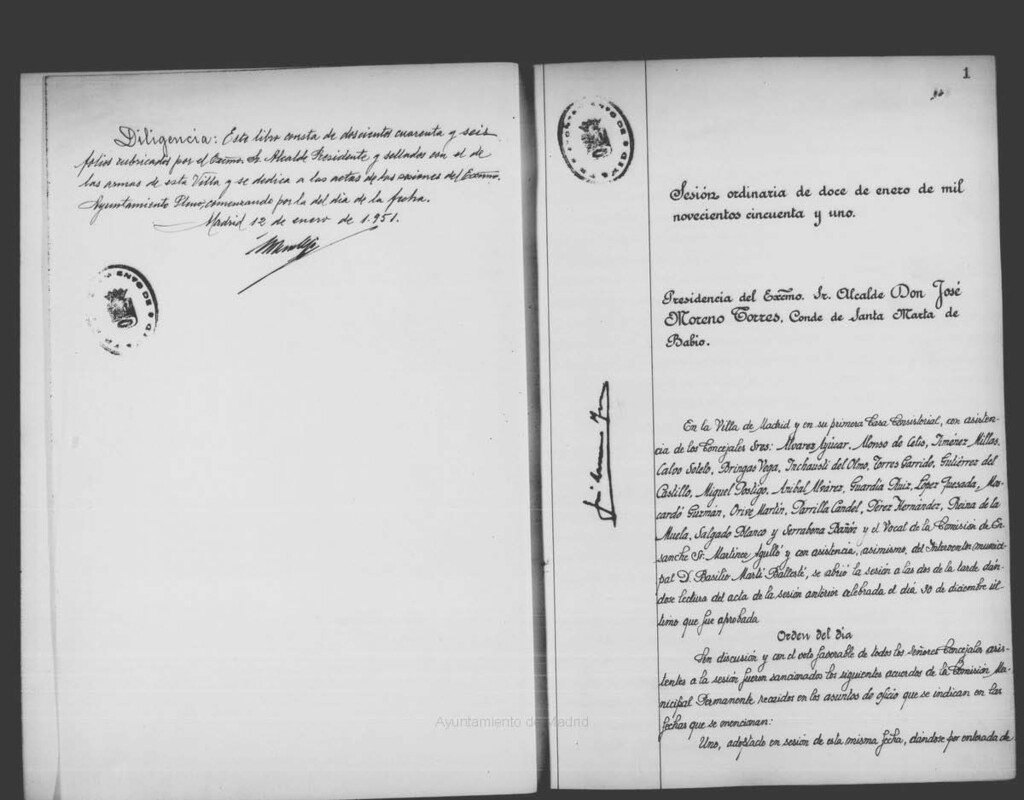 Diligencia: Este libro consta de doscientos cuarenta y seis
folios rubricados por el Excmo. Sr. Alcalde Presidente y sellados con el de
las armas de esta Villa y se dedica a las actas de las sesiones del Excmo.
Ayuntamiento Pleno, comenzando por la del día de la fecha.
Madrid 12 de enero de 1.951.
1
Sesión ordinaria de doce de enero de mil
novecientos cincuenta y uno.
Presidencia del Excmo. Sr. Alcalde Don José
Moreno Torres, Conde de Santa Marta de
Babio.
En la Villa de Madrid y en su primera Casa Consistorial, con asisten-
cia de los Concejales Sres: Alvarez Ayúcar, Alonso de Celis, Jiménez Millas,
Calvo Sotelo, Bringas Vega, Inchausti del Olmo, Torres Garrido, Gutiérrez del
Castillo, Miguel Postigo, Anibal Alvárez, Guardia Ruiz, López Quesada, Mo-
cardó Guzmán, Orive Martín, Parrilla Candel, Pérez Hernández, Reina de la
Muela, Salgado Blanco y Serrabona Bañón y el Vocal de la Comisión de En-
sanche Sr. Martínez Agulló y con asistencia, asimismo, del Interventor munici-
pal D. Basilio Martí Ballesté, se abrió la sesión a las dos de la tarde dán-
dose lectura del acta de la sesión anterior celebrada el día 30 de diciembre úl-
timo que fue aprobada
Orden del día
Sin discusión y con el voto favorable de todos los señores Concejales asis-
tentes a la sesión fueron sancionados los siguientes acuerdos de la Comisión Mu-
nicipal Permanente recaídos en los asuntos de oficio que se indican en las
fechas que se mencionan:
Uno, adoptado en sesión de esta misma fecha, dándose por enterada de
Ayuntamiento de Madrid